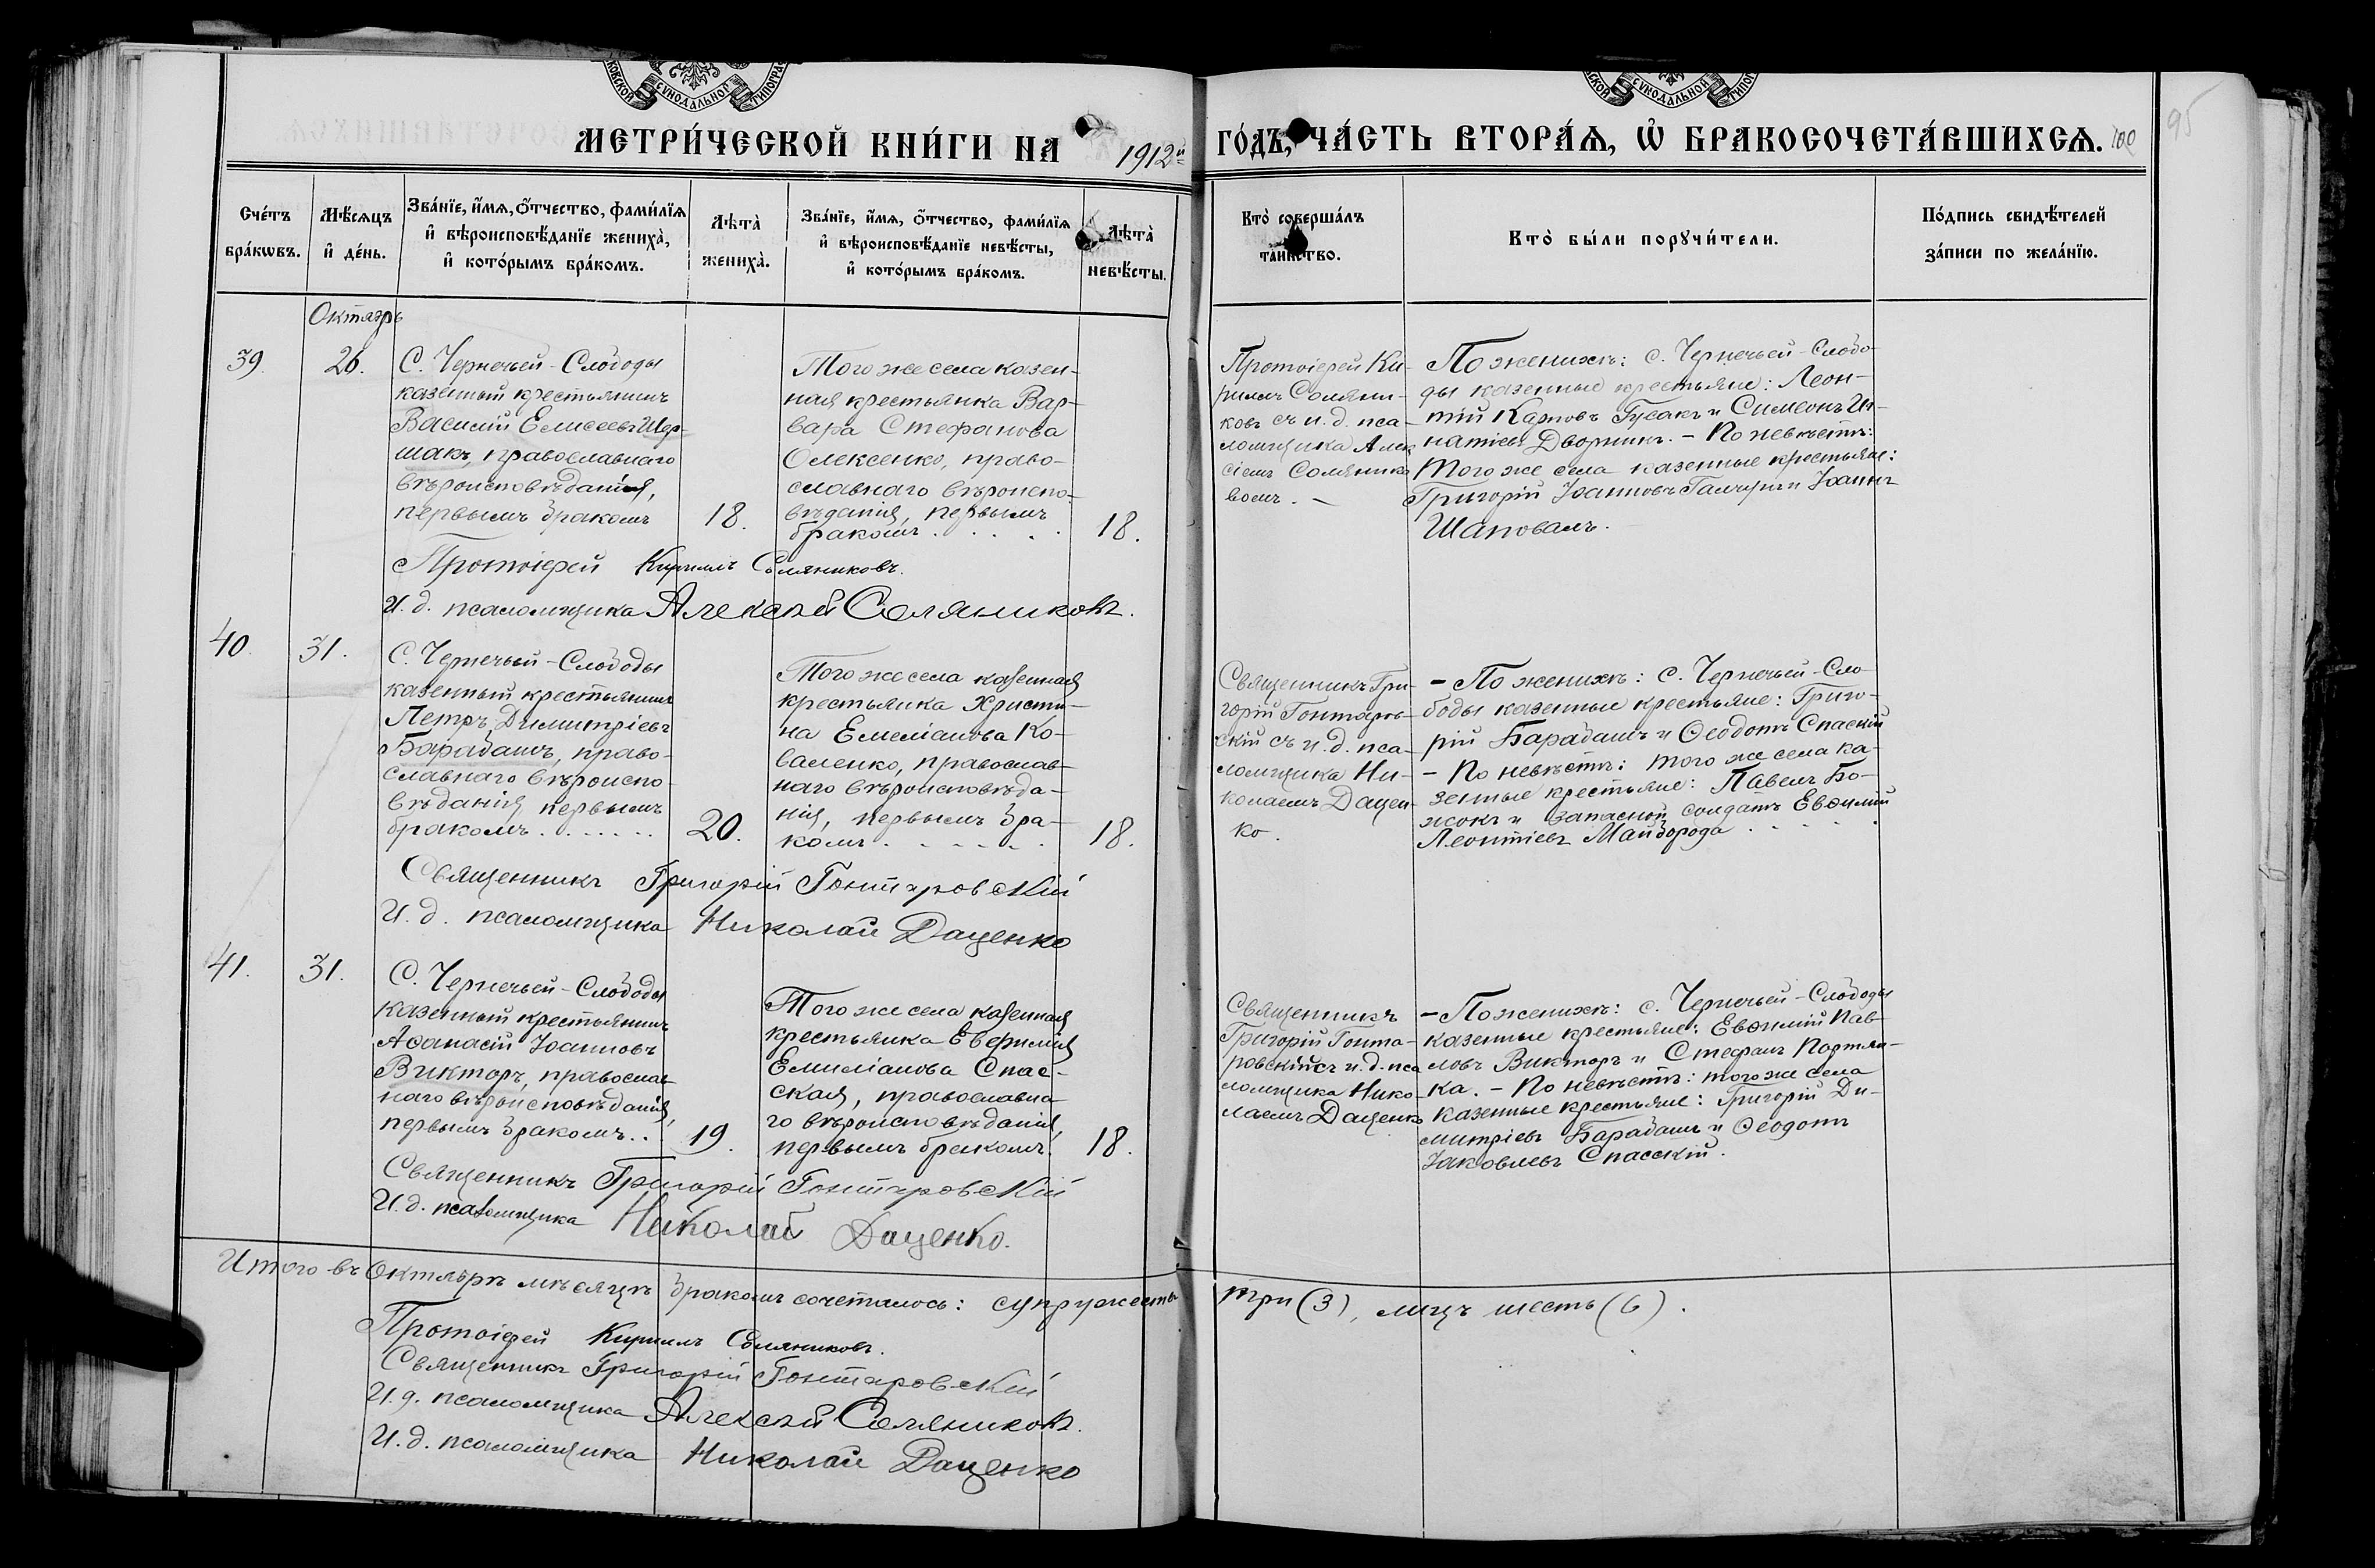 МЕТРИ́ЧЕСКОЙ КНИ́ГИ НА 1912й ГО́ДЪ, ЧА́СТЬ ВТОРА́Я, Ѽ БРАКОСОЧЕТА́ВШИХСЯ. 100
95
Сче́тъ бра́кѡвъ.
Мѣ́сяцъ и҆ де́нь.
Зва́нїе, и҆́мя, ѻ҆́тчество, фами́лїя
и҆ вѣроисповѣ́данїе жениха̀,
и҆ кото́рымъ бра́комъ.
Лѣта̀ жениха̀.
Зва́нїе, и҆́мя, ѻ҆́тчество, фами́лїя
и҆ вѣроисповѣ́данїе невѣ́сты,
и҆ кото́рымъ бра́комъ.
Лѣта̀ невѣ́сты.
Кто̀ соверша́лъ
та́инство.
Кто̀ бы́ли порꙋчи́тели.
По́дпись свидѣ́телей
за́писи по жела́нїю.
Октябрь
39.
26.
С. Чернечьей-Слободы
казенный крестьянинъ
Василій Елисеевъ Шер-
шакъ, православнаго
вѣроисповѣданія,
первымъ бракомъ
18.
Того же села казен-
ная крестьянка Вар-
вара Стефанова
Олексенко, право-
славнаго вѣроиспо-
вѣданія, первымъ
бракомъ . . . . .
18.
Протоіерей Ки-
риллъ Соляни-
ковъ съ и. д. пса-
ломщика Алек
сіемъ Солянико
вомъ. —
По женихѣ: с. Чернечьей-Слобо-
ды казенные крестьяне: Леон-
тій Карповъ Гусакъ и Симеонъ Иг-
натіевъ Дворникъ. — По невѣстѣ:
того же села казенные крестьяне:
Григорій Іоанновъ Галчунъ и Іоаннъ
Шаповалъ.
Протоіерей Кириллъ Соляниковъ.
И. д. псаломщика Алексѣй Соляниковъ.
40.
31.
С. Чернечьей-Слободы
казенный крестьянинъ
Петръ Димитріевъ
Барабашъ, право-
славнаго вѣроиспо-
вѣданія, первымъ
бракомъ . . . . . .
20.
Того же села казенная
крестьянка Христи-
на Емеліанова Ко-
валенко, православ-
наго вѣроисповѣда-
нія, первымъ бра-
комъ . . . . . .
18.
Священникъ Гри-
горій Гонтаров-
скій съ и. д. пса-
ломщика Ни-
колаемъ Дацен-
ко.
— По женихѣ: с. Чернечьей-Сло-
боды казенные крестьяне: Григо-
рій Барабашъ и Ѳеодотъ Спаскій
— По невѣстѣ: того же села ка-
зенные крестьяне: Павелъ Бо-
жокъ и запасной солдатъ Евѳимій
Леонтіевъ Майборода . . . .
Священникъ Григорій Гонтаровскій
И. д. псаломщика Николай Даценко
41.
31.
С. Чернечьей-Слободы
казенный крестьянинъ
Аѳанасій Іоанновъ
Викторъ, православ-
наго вѣроисповѣданія,
первымъ бракомъ. . .
19.
Того же села казенная
крестьянка Евфимія
Емиліанова Спас-
ская, православна-
го вѣроисповѣданія,
первымъ бракомъ.
18.
Священникъ
Григорій Гонта-
ровскій съ и. д. пса
ломщика Нико-
лаемъ Даценко
— По женихѣ: с. Чернечьей-Слободы
казенные крестьяне: Евѳимій Пав-
ловъ Викторъ и Стефанъ Портян-
ка. — По невѣстѣ: того же села
казенные крестьяне: Григорій Ди-
митріевъ Барабашъ и Ѳеодотъ
Іаковлевъ Спасскій.
Священникъ Григорій Гонтаровскій
И. д. псаломщика Николай Даценко.
Итого въ Октябрѣ мѣсяцѣ бракомъ сочеталось: супружествъ три (3), лицъ шесть (6).
Протоіерей Кириллъ Соляниковъ.
Священникъ Григорій Гонтаровскій
И. д. псаломщика Алексѣй Соляниковъ.
И. д. псаломщика Николай Даценко